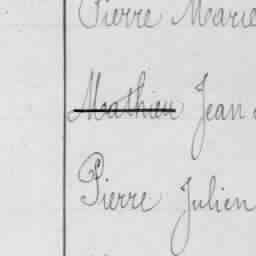 Pierre Marie
Mathieu Jean
Pierre Julien